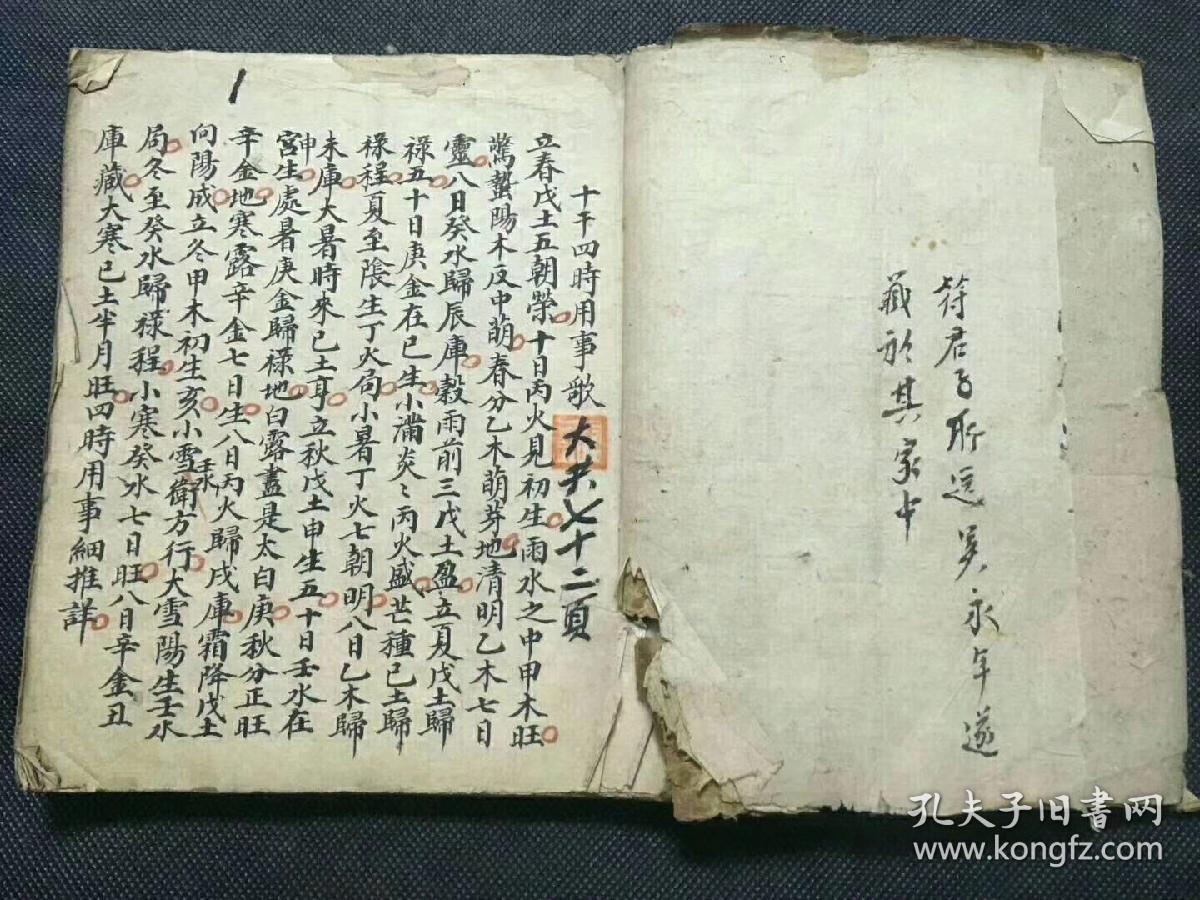 符君子所迄吴永年遂
藏於其家中
十干四時用事歌
大共七十二頁
立春戊土五朝榮十日丙火見初生雨水之中甲木旺
驚蟄陽木反中萌春分乙木萌芽地清明乙木七日
靈八日癸水歸辰庫穀雨前三戊土盈立夏戊土歸
祿五十日庚金在巳生小滿炎〻丙火盛芒種已土歸
祿程夏至陰生丁火局小暑丁火七朝明八日乙木歸
未庫大暑時來已土亨立秋戊土申生五十日壬水在
申
宮生處暑庚金歸祿地白露盡是太白庚秋分正旺
辛金地寒露辛金七日生八日丙火歸戌庫霜降戊土
向陽成立冬甲木初生亥小雪壬水衛方行大雪陽生壬水
局冬至癸水歸祿程小寒癸水七日旺八日辛金丑
庫藏大寒已土半月旺四時用事細推詳
1
孔夫子旧書网
www.kongfz.com